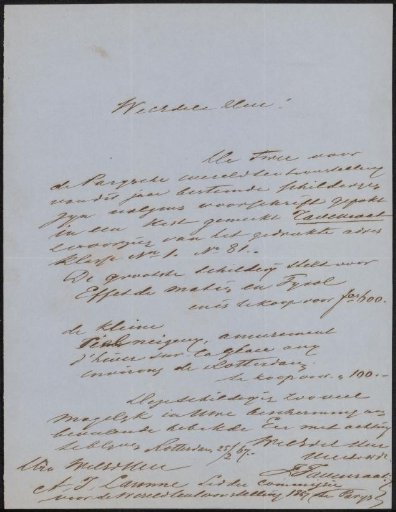 WelEdele Heer!
De twee voor
de Parysche wereldtentoonstelling
van dit jaar bestemde schilderyen
zyn volgens voorschrift gepakt
in een Kist gemerkt Tavenraat
voorzien van het gedrukte adres
Klasse No 1. No 81.
De grootste schildery stelt voor
Effet de matin en Tyrol
en is te koop voor ƒ 600.
de kleine
amusement
d'hiver sur la glace aux
environs de Rotterdam
te koop voor " 100.-
Deze schilderyen zooveel
mogelyk in Uwe bescherming aan
bevelende heb ik de Eer met achting
te blyven WelEdele Heer
Rotterdam 25/2 67.
J. Tavenraat
Den WelEd Heer
A. J. Lamme Lid der Commissie
voor de Wereldtentoonstelling 1867 (te Parys)